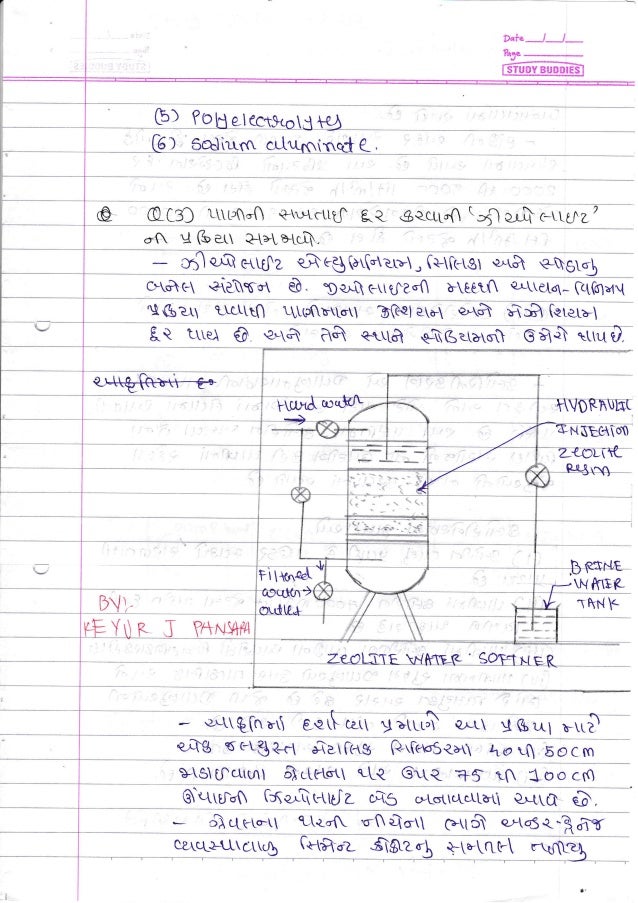 Date __/__/__
Page
STUDY BUDDIES
(5) Polyelectrolytes
(6) Sodium aluminate.
Q(3) પાણીની સખતાઈ દૂર કરવાની 'ઝીઓલાઈટ'
ની પ્રક્રિયા સમજાવો.
– ઝીઓલાઈટ એલ્યુમિનિયમ, સિલિકા અને સોડાનું
બનેલ સંયોજન છે. જીઓલાઈટની મદદથી આયન-વિનિમય
પ્રક્રિયા થવાથી પાણીમાંના કેલ્શિયમ અને મેગ્નેશિયમ
દૂર થાય છે. અને તેને સ્થાને સોડિયમનો ઉમેરો થાય છે.
આકૃતિમાં
Hard water
HYDRAULIC
INJECTION
ZEOLITE
RESIN
Filtered
water
outlet
BRINE
WATER
TANK
BY:
KEYUR J PANSARA
ZEOLITE WATER SOFTNER
– આકૃતિમાં દર્શાવ્યા પ્રમાણે આ પ્રક્રિયા માટે
એક જલચુસ્ત મેટાલિક સિલિન્ડરમાં 40 થી 50 cm
જાડાઈવાળા ગ્રેવલના થર ઉપર 75 થી 100 cm
ઊંચાઈની ઝિઓલાઈટ બેડ બનાવવામાં આવે છે.
– ગ્રેવલના થરની નીચેના ભાગે અન્ડર-ડ્રેનેજ
વ્યવસ્થાવાળું સિમેન્ટ કોંક્રિટનું સમતલ તળીયુ